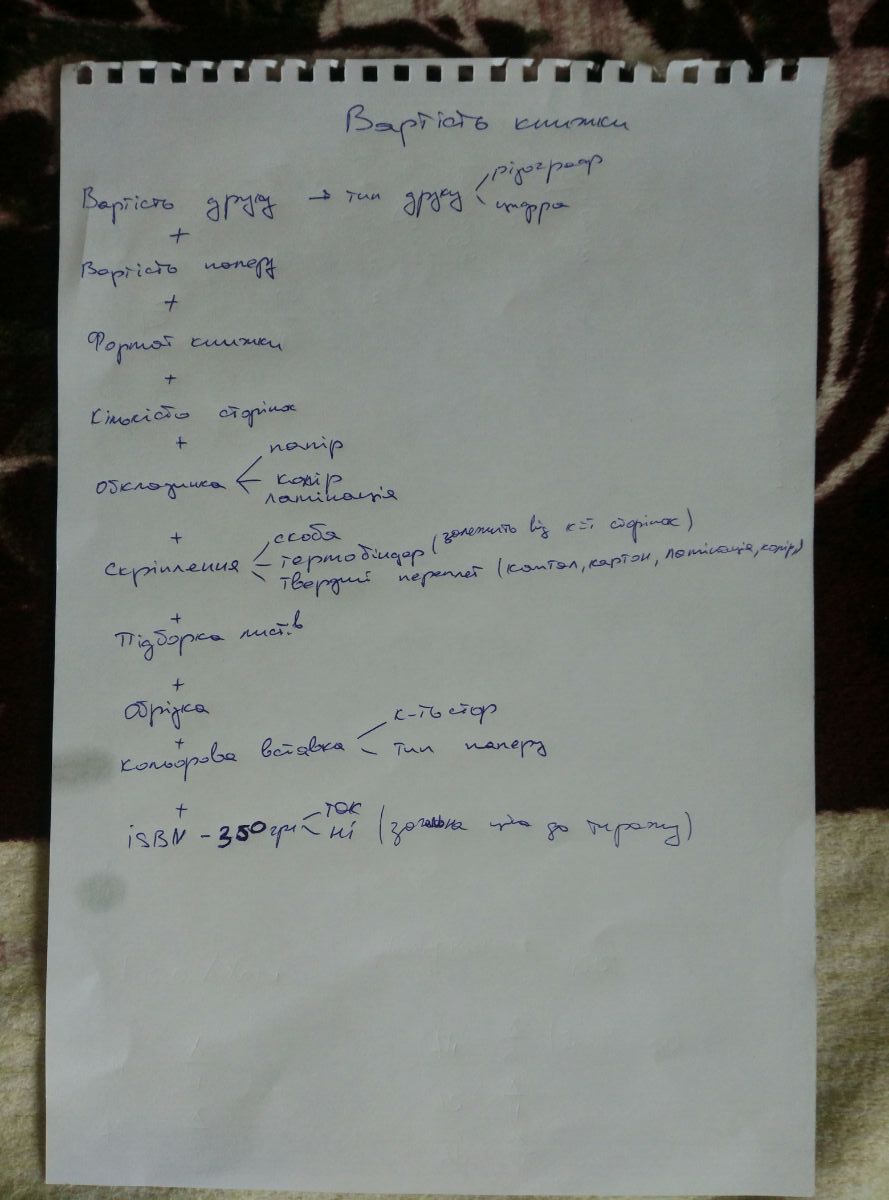 Вартість книжки
Вартість друку → тип друку
різограф
цифра
+
Вартість паперу
+
Формат книжки
+
Кількість сторінок
+
Обкладинка
папір
колір
ламінація
+
Скріплення
скоба
термобіндер (залежить від к-ті сторінок)
твердий переплет (каптал, картон, ламінація, колір)
+
Підборка листів
+
Обрізка
+
Кольорова вставка
к-ть стор
тип паперу
+
ISBN - 350 грн
так
ні (загальна ціна до тиражу)